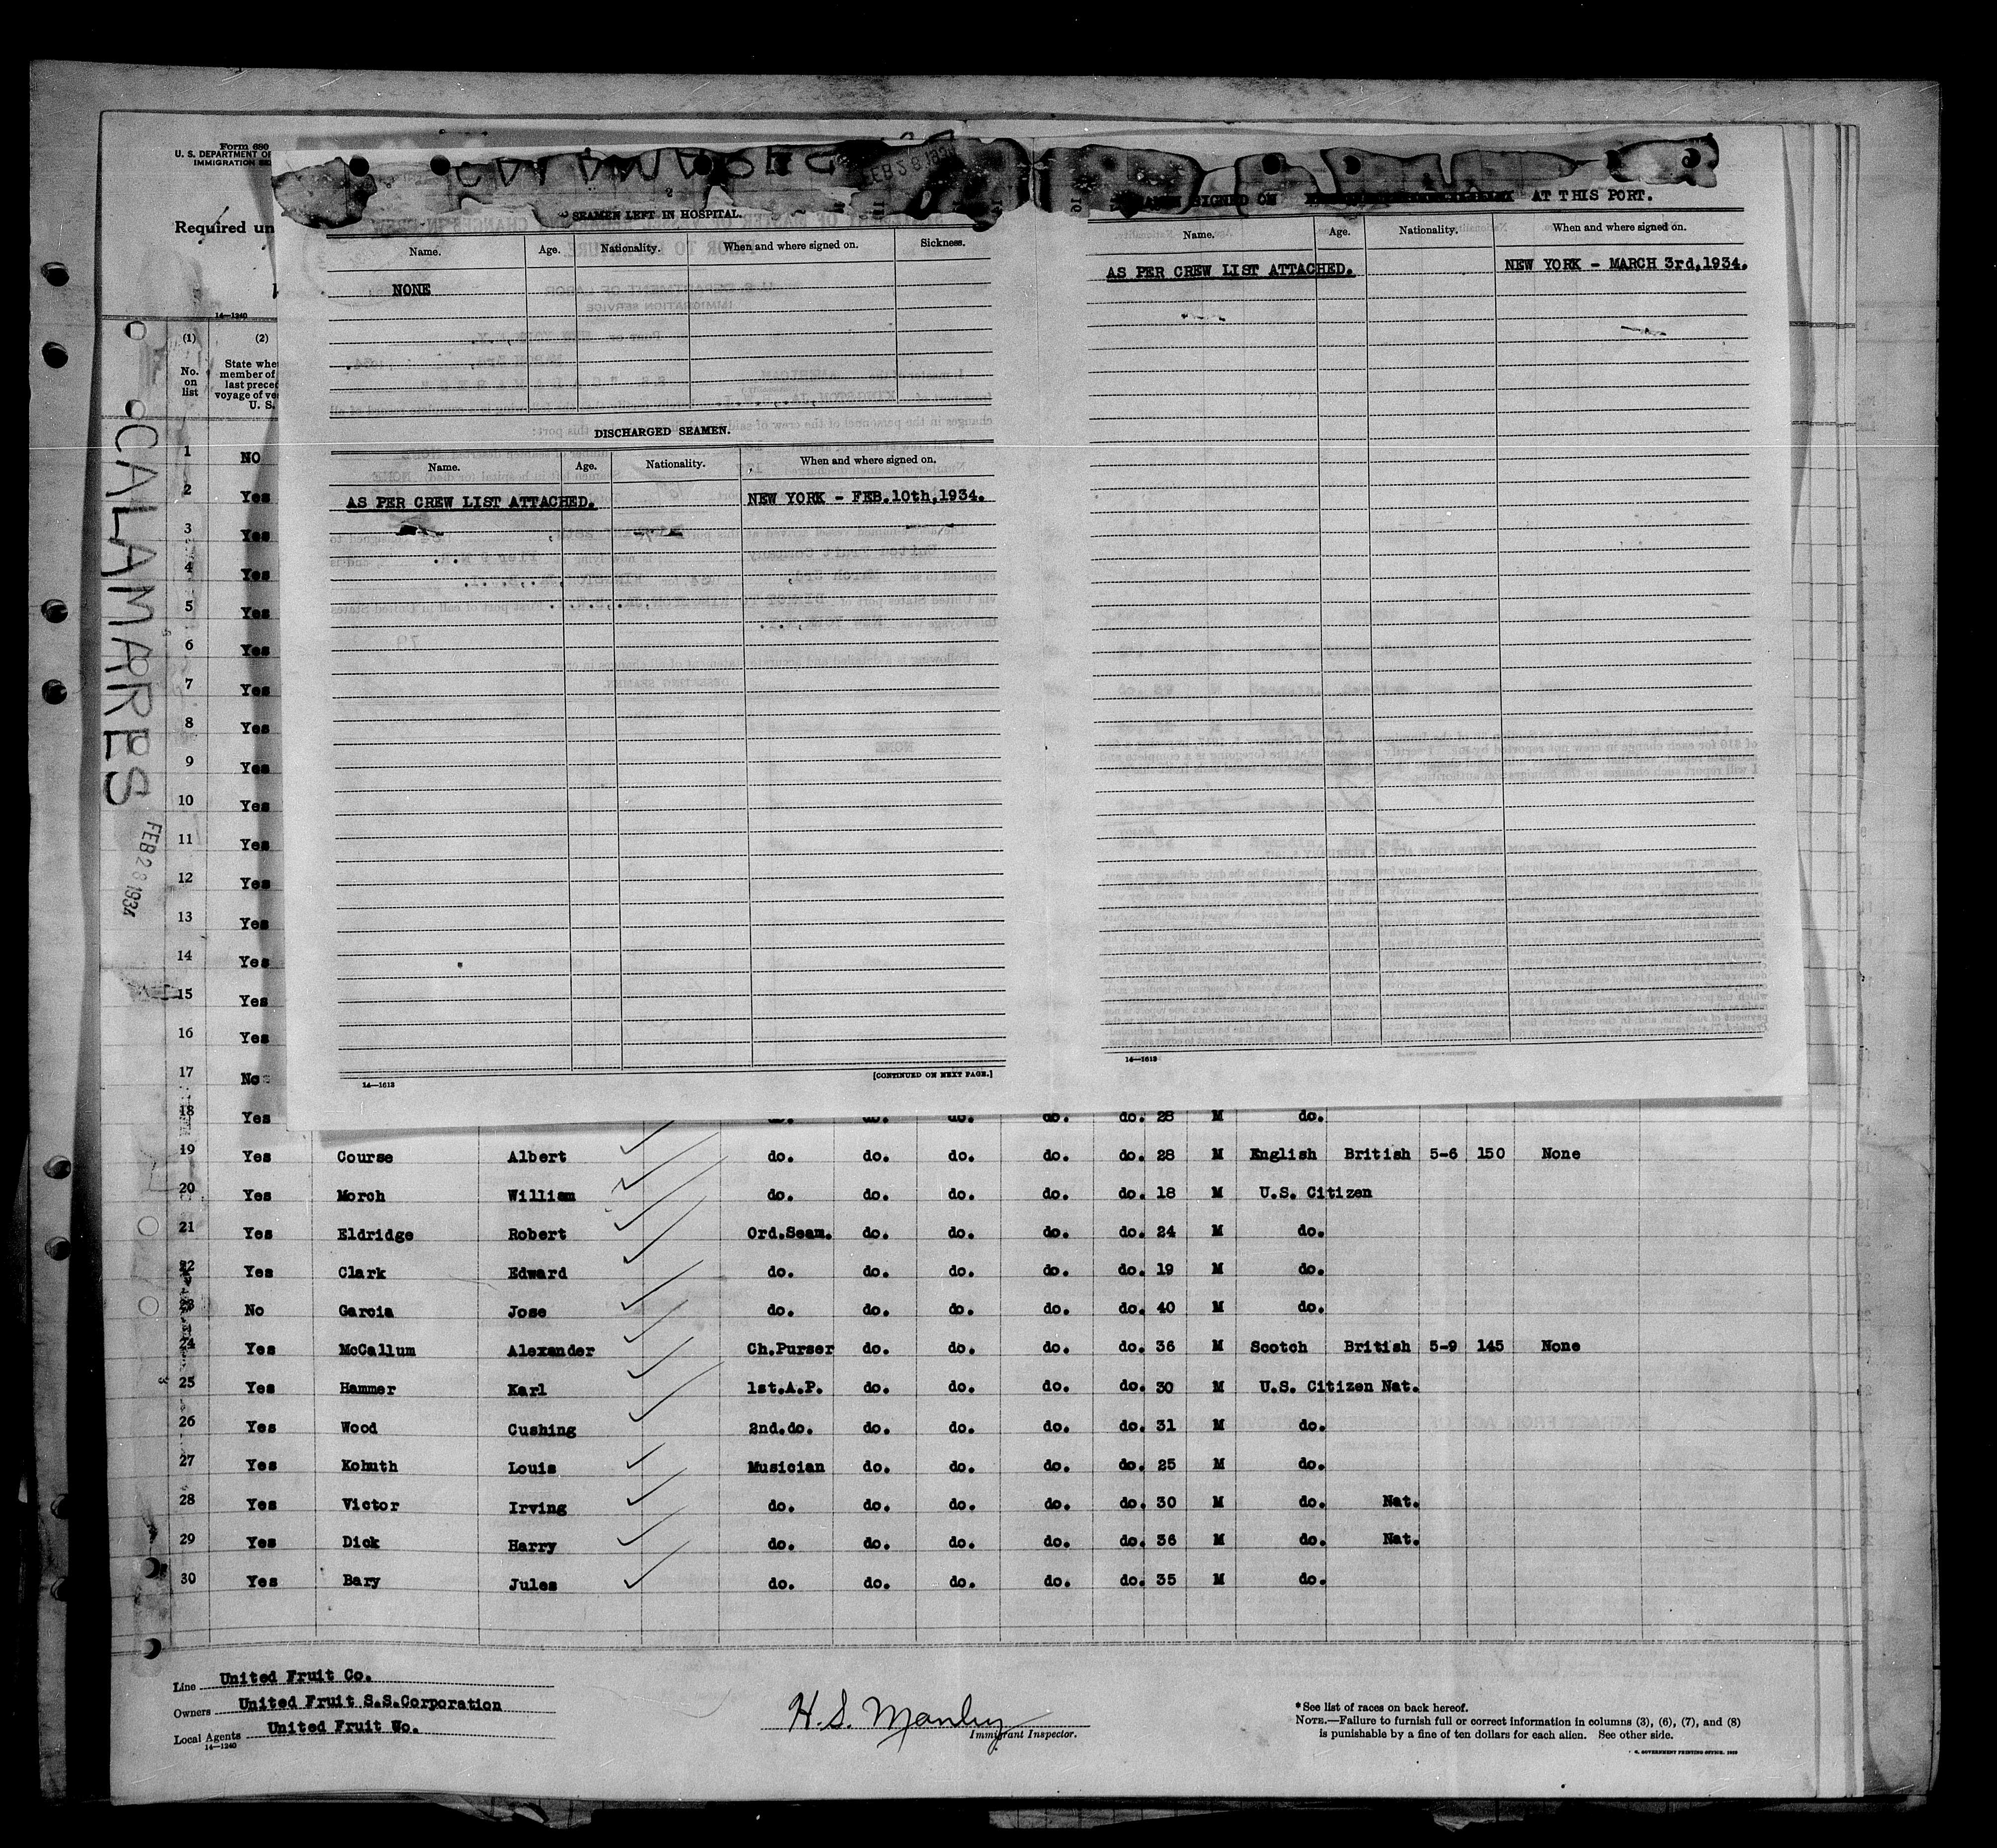 Form 680
U. S. DEPARTMENT OF
IMMIGRATION
Required un
14—1240
CALAMARES
FEB 28 1934
FEB 28 1934
SEAMEN LEFT IN HOSPITAL.
Name. Age. Nationality. When and where signed on. Sickness.
NONE
DISCHARGED SEAMEN.
Name. Age. Nationality. When and where signed on.
AS PER CREW LIST ATTACHED. NEW YORK - FEB.10th,1934.
14—1613 [CONTINUED ON NEXT PAGE.]
SIGNED ON AT THIS PORT.
Name. Age. Nationality. When and where signed on.
AS PER CREW LIST ATTACHED. NEW YORK - MARCH 3rd,1934.
14—1613
(1) (2)
No. on list
State whe
member of
last prece
voyage of ve
U. S.
1 NO
2 Yes
3 Yes
4 Yes
5 Yes
6 Yes
7 Yes
8 Yes
9 Yes
10 Yes
11 Yes
12 Yes
13 Yes
14 Yes
15 Yes
16 Yes
17 No
18 Yes do. do. do. do. do. 28 M do.
19 Yes Course Albert do. do. do. do. do. 28 M English British 5-6 150 None
20 Yes Morch William do. do. do. do. do. 18 M U.S. Citizen
21 Yes Eldridge Robert Ord.Seam. do. do. do. do. 24 M do.
22 Yes Clark Edward do. do. do. do. do. 19 M do.
23 No Garcia Jose do. do. do. do. do. 40 M do.
24 Yes McCallum Alexander Ch.Purser do. do. do. do. 36 M Scotch British 5-9 145 None
25 Yes Hammer Karl 1st.A.P. do. do. do. do. 30 M U.S. Citizen Nat.
26 Yes Wood Cushing 2nd.do. do. do. do. do. 31 M do.
27 Yes Kohuth Louis Musician do. do. do. do. 25 M do.
28 Yes Victor Irving do. do. do. do. do. 30 M do. Nat.
29 Yes Dick Harry do. do. do. do. do. 36 M do. Nat.
30 Yes Bary Jules do. do. do. do. do. 35 M do.
Line United Fruit Co.
Owners United Fruit S.S.Corporation
Local Agents United Fruit Wo.
14—1240
H. S. Manley
Immigrant Inspector.
* See list of races on back hereof.
NOTE.—Failure to furnish full or correct information in columns (3), (6), (7), and (8)
is punishable by a fine of ten dollars for each alien. See other side.
GOVERNMENT PRINTING OFFICE